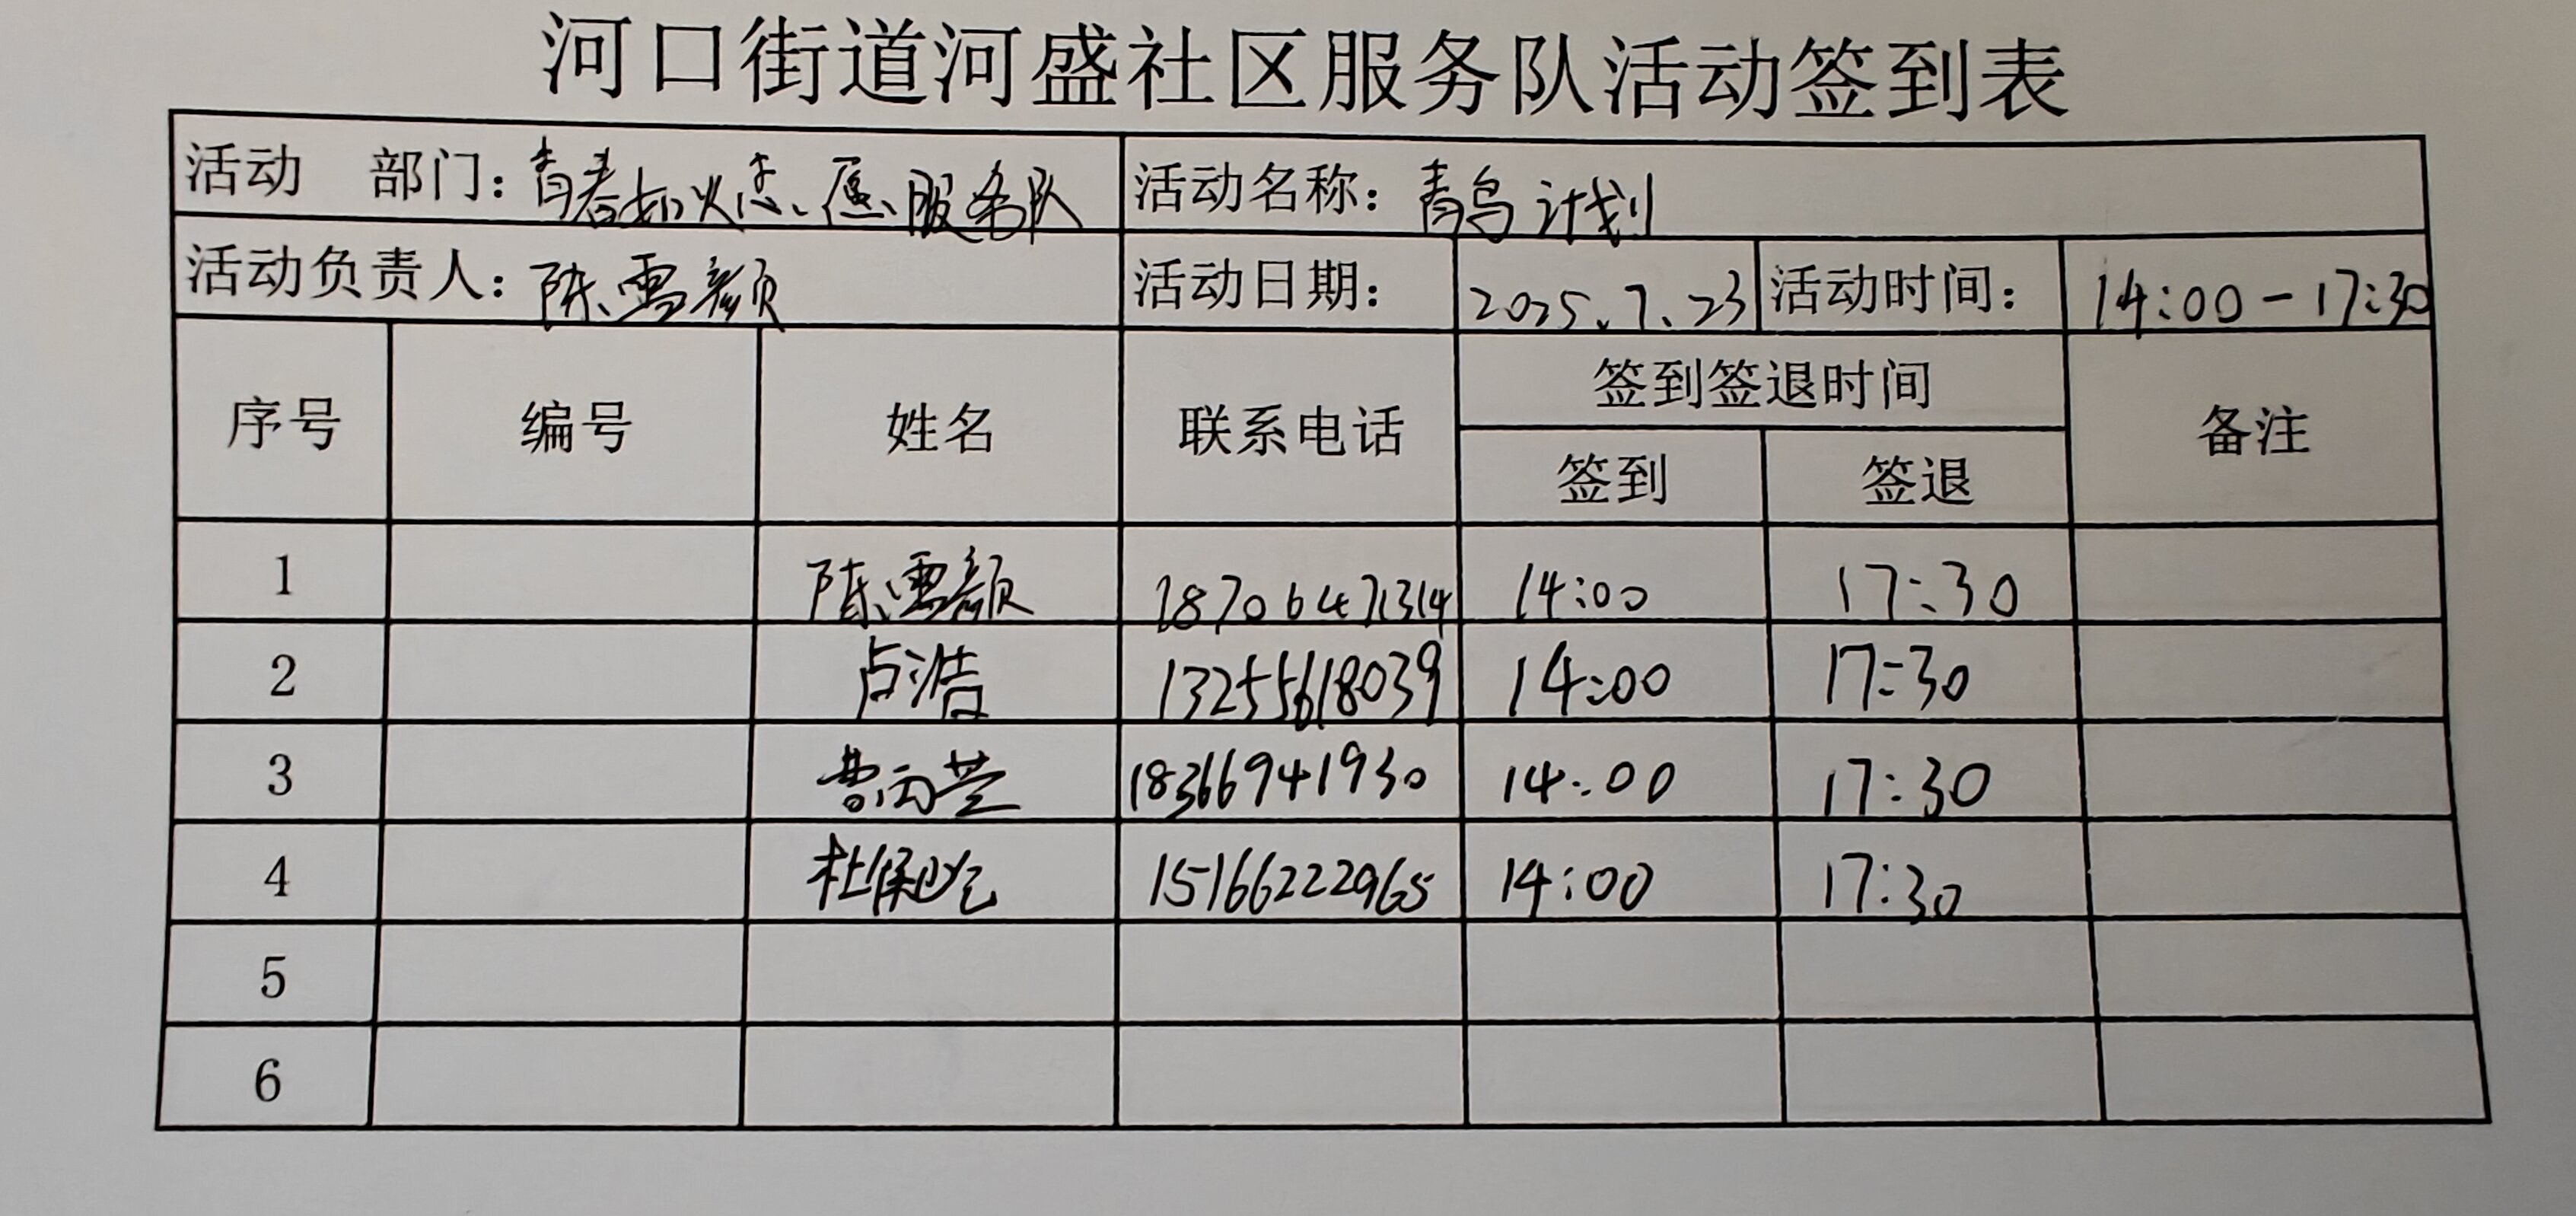 河口街道河盛社区服务队活动签到表
活动 部门：青春如火志愿服务队 活动名称：青鸟计划
活动负责人：陈雪颜 活动日期： 2025.7.23 活动时间： 14:00-17:30
序号 编号 姓名 联系电话 签到签退时间 备注
签到 签退
1 陈雪颜 18706471314 14:00 17:30
2 卢浩 13255618039 14:00 17:30
3 18366941930 14:00 17:30
4 15166222965 14:00 17:30
5
6